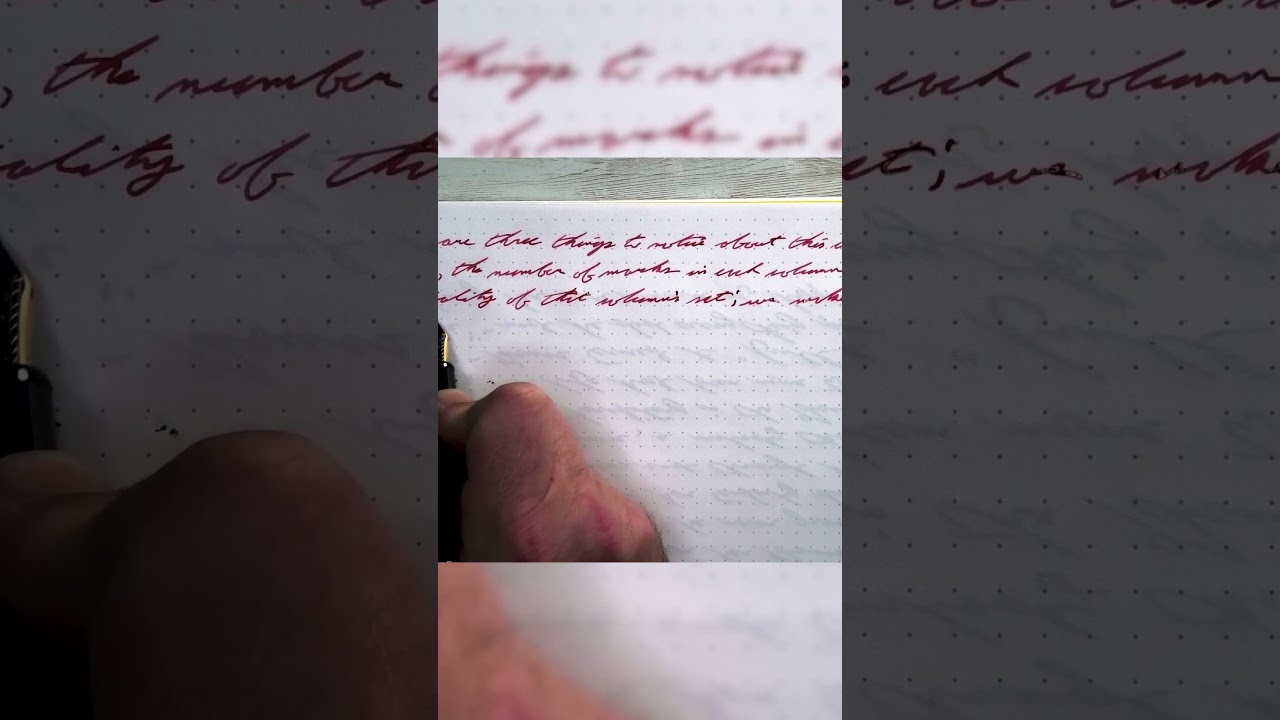 are three things to notice about this
, the number of marks in each column
ality of that column's set; we make